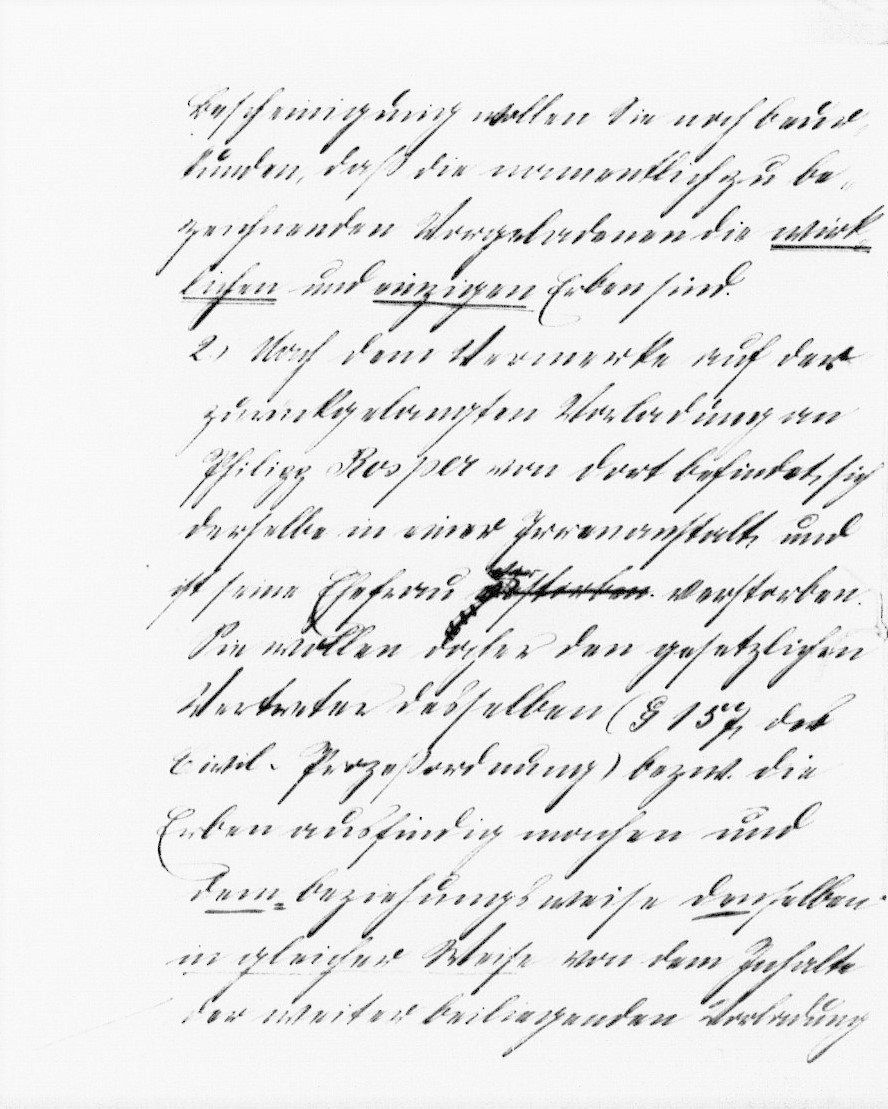 Bescheinigung wollen Sie noch beur-
kunden, daß die namentlich zu be-
zeichnenden Vorgeladenen die wirk-
lichen und einzigen Erben sind.
2.) Nach dem Vermerke auf der
zurückgelangten Vorladung an
Philipp Rosper von dort befindet sich
derselbe in einer Irrenanstalt und
ist seine Ehefrau verstorben.
Sie wollen daher den gesetzlichen
Vertreter desselben (§ 157 der
Civil-Prozeßordnung) bezw. die
Erben ausfindig machen und
dem- beziehungsweise denselben
in gleicher Weise von dem Inhalte
der weiter beiliegenden Vorladung